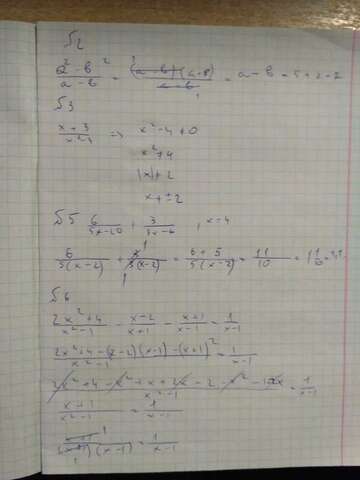 №2
a² - b² / a - b = (a - b)(a + b) / a - b = a - b = 5 + 2 = 7
№3
x + 3 / x² - 4 => x² - 4 ≠ 0
x² ≠ 4
|x| ≠ 2
x ≠ ± 2
№5 6 / 5x - 10 + 3 / 3x - 6 , x = 4
6 / 5(x - 2) + 3 / 3(x - 2) = 6 + 5 / 5(x - 2) = 11 / 10 = 1 1/10 = 1,1
№6
2x² + 4 / x² - 1 - x - 2 / x + 1 - x + 1 / x - 1 = 1 / x - 1
2x² + 4 - (x - 2)(x - 1) - (x + 1)² / x² - 1 = 1 / x - 1
2x² + 4 - x² + x + 2x - 2 - x² - 1 - 2x / x² - 1 = 1 / x - 1
x + 1 / x² - 1 = 1 / x - 1
x + 1 / (x + 1)(x - 1) = 1 / x - 1